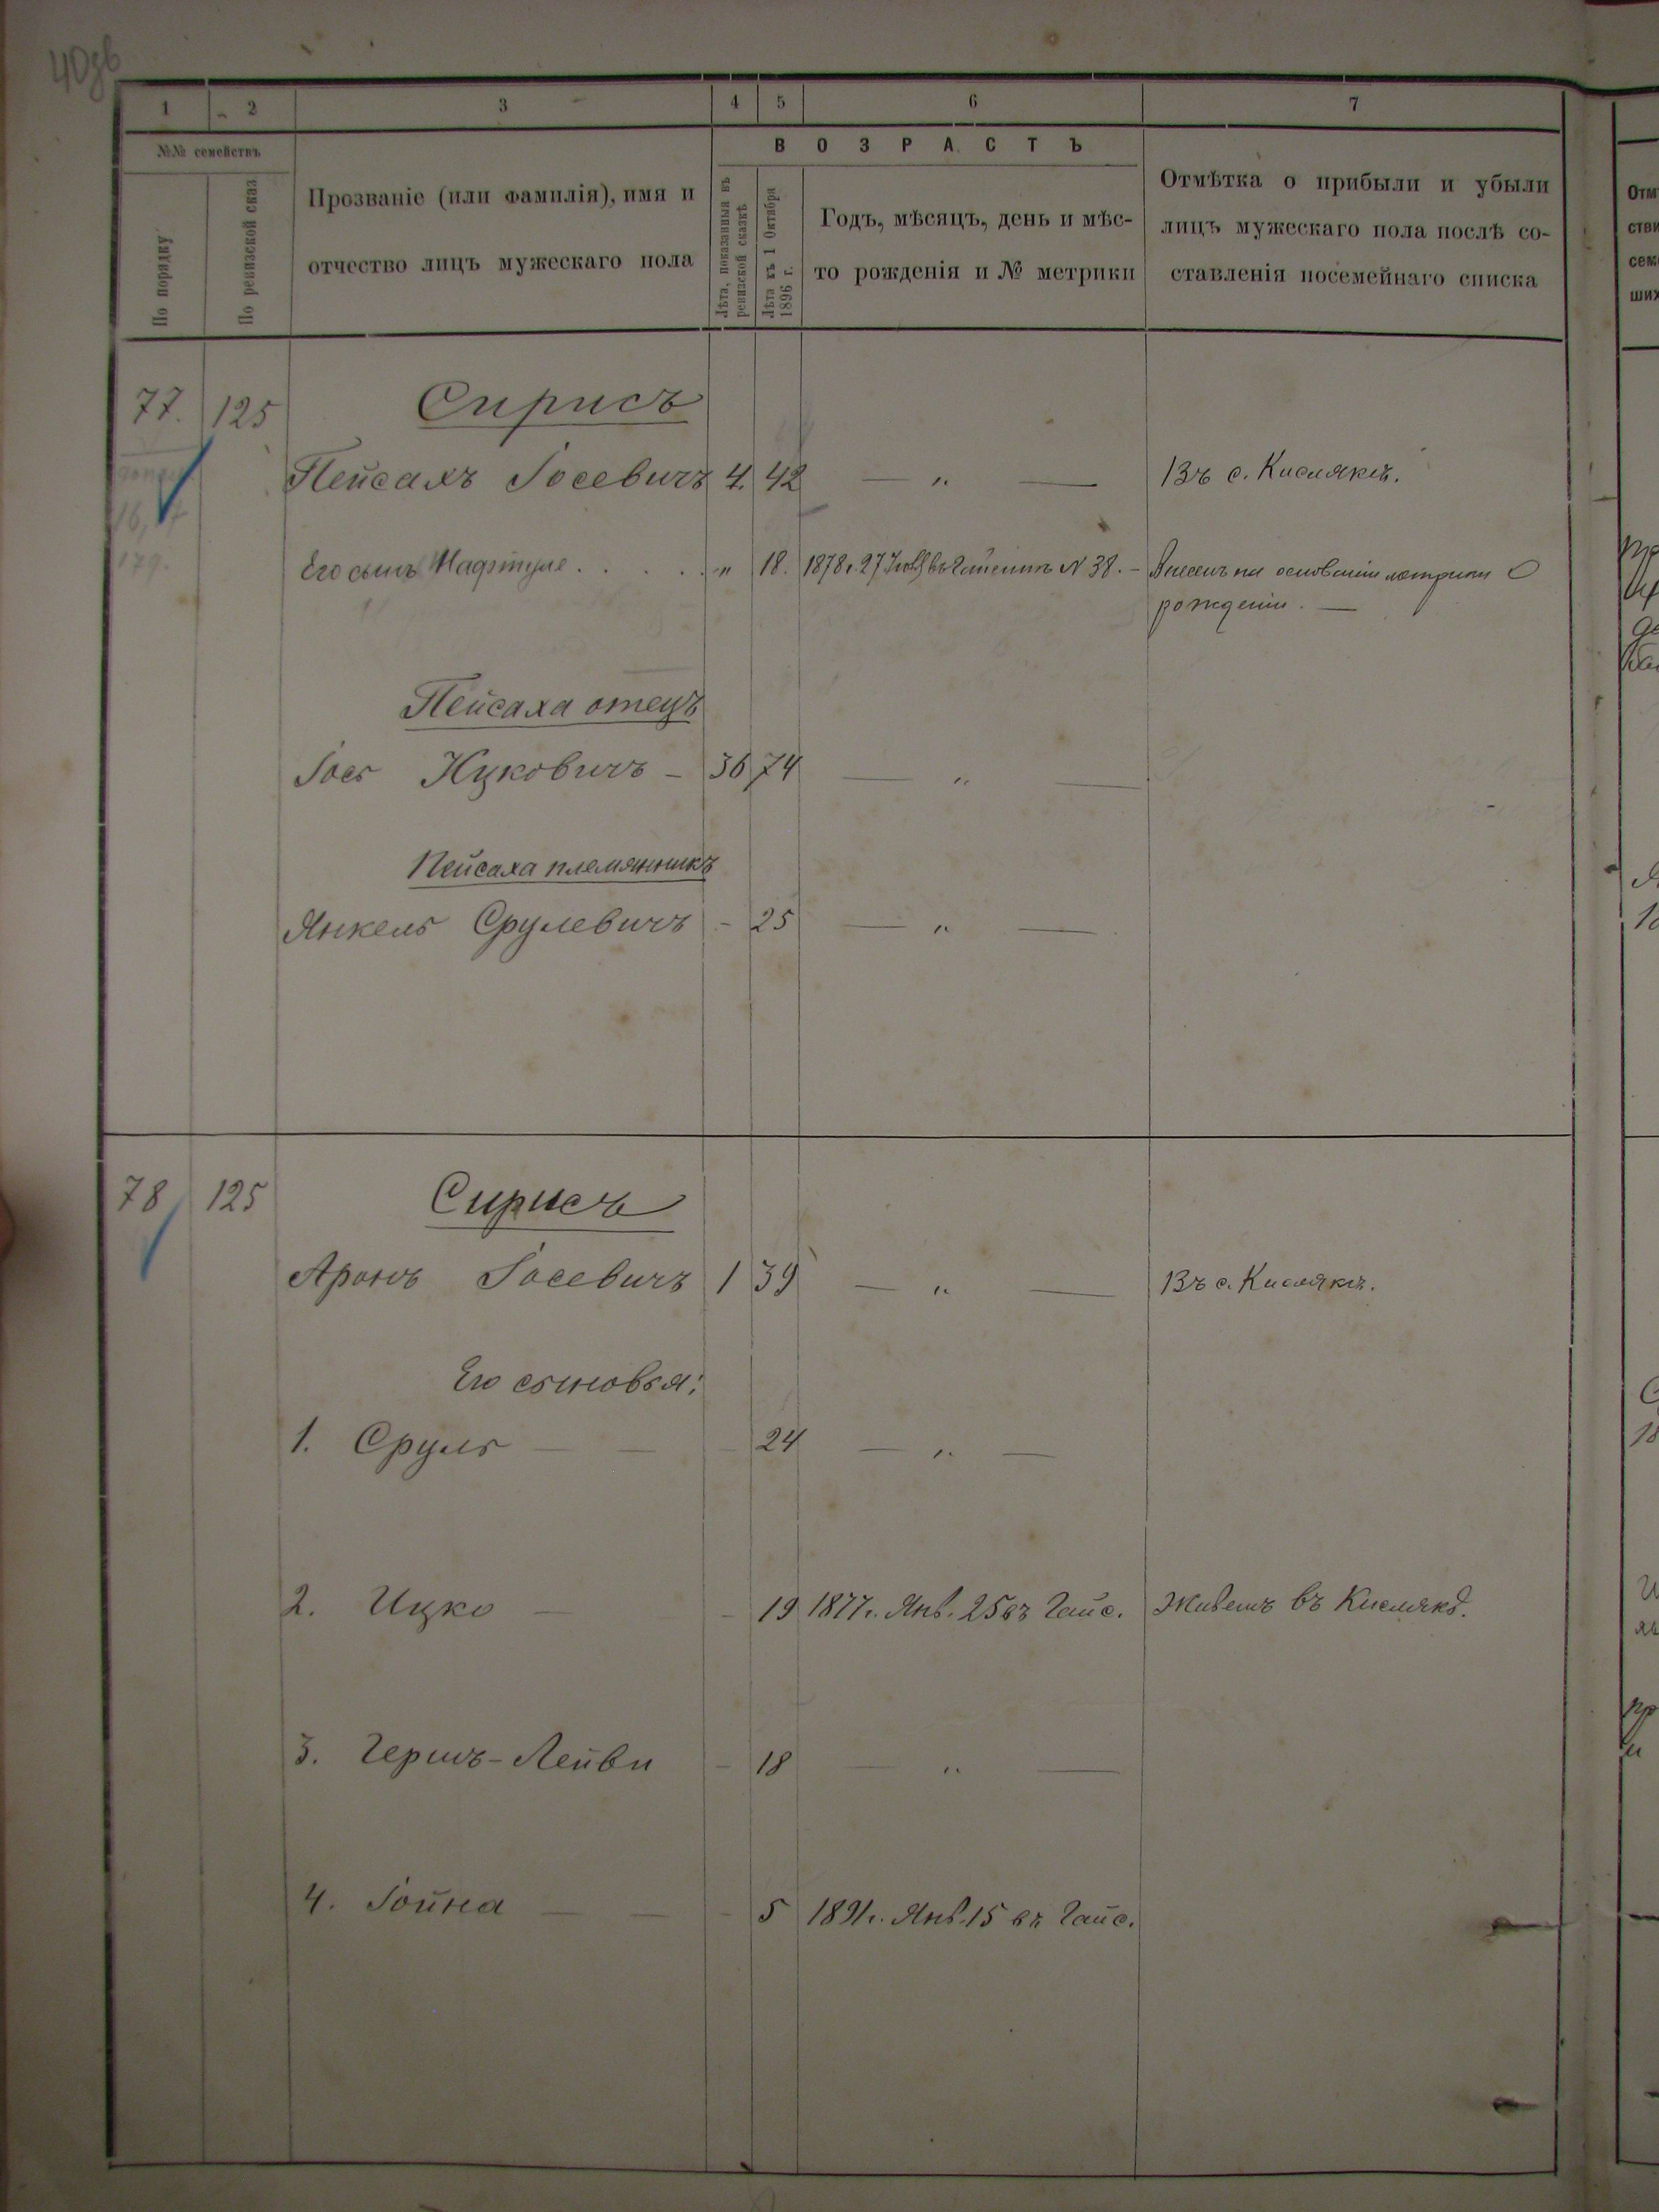 40зв
1 2 3 4 5 6 7
№№ семействъ
По порядку
По ревизской сказ
Прозваніе (или фамилія), имя и
отчество лицъ мужескаго пола
ВОЗРАСТЪ
Лѣта, показанныя въ
ревизской сказкѣ
Лѣта къ 1 Октября
1896 г.
Годъ, мѣсяцъ, день и мѣс-
то рожденія и № метрики
Отмѣтка о прибыли и убыли
лицъ мужескаго пола послѣ со-
ставленія посемейнаго списка
77. 125 Сирисъ
Пейсахъ Іосевичъ 4. 42 — " — Въ с. Кислякѣ.
Его сынъ Нафтуле . . . . . " 18. 1878 г. 27 въ Гайсинѣ N 38. – на основаніи метрики о
рожденіи. —
179.
Пейсаха отецъ
Іось Ицковичъ – 36 74 — " —
Пейсаха племянникъ
Янкель Срулевичъ - 25 — " —
78 125 Сирисъ
Аронъ Іосевичъ 1 39 — " — Въ с. Кислякѣ.
Его сыновья:
1. Сруль — — - 24 — " —
2. Ицко — - 19 1877 г. Янв. 25 въ Гайс. Живетъ въ Кислякѣ.
3. Гершъ-Лейви - 18 — " —
4. Іойна — — - 5 1891 г. Янв. 15 въ Гайс.